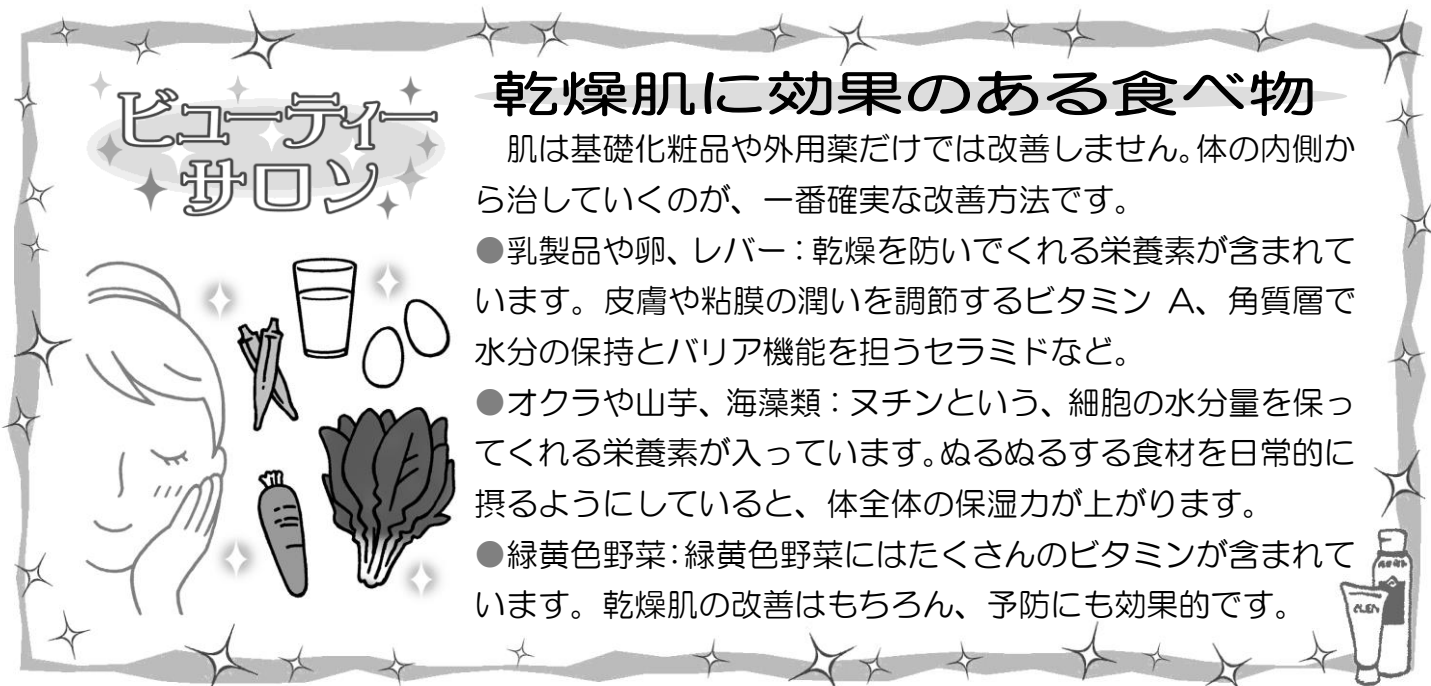 ビューティー
サロン
乾燥肌に効果のある食べ物
　肌は基礎化粧品や外用薬だけでは改善しません。体の内側か
ら治していくのが、一番確実な改善方法です。
●乳製品や卵、レバー：乾燥を防いでくれる栄養素が含まれて
います。皮膚や粘膜の潤いを調節するビタミン A、角質層で
水分の保持とバリア機能を担うセラミドなど。
●オクラや山芋、海藻類：ヌチンという、細胞の水分量を保っ
てくれる栄養素が入っています。ぬるぬるする食材を日常的に
摂るようにしていると、体全体の保湿力が上がります。
●緑黄色野菜：緑黄色野菜にはたくさんのビタミンが含まれて
います。乾燥肌の改善はもちろん、予防にも効果的です。